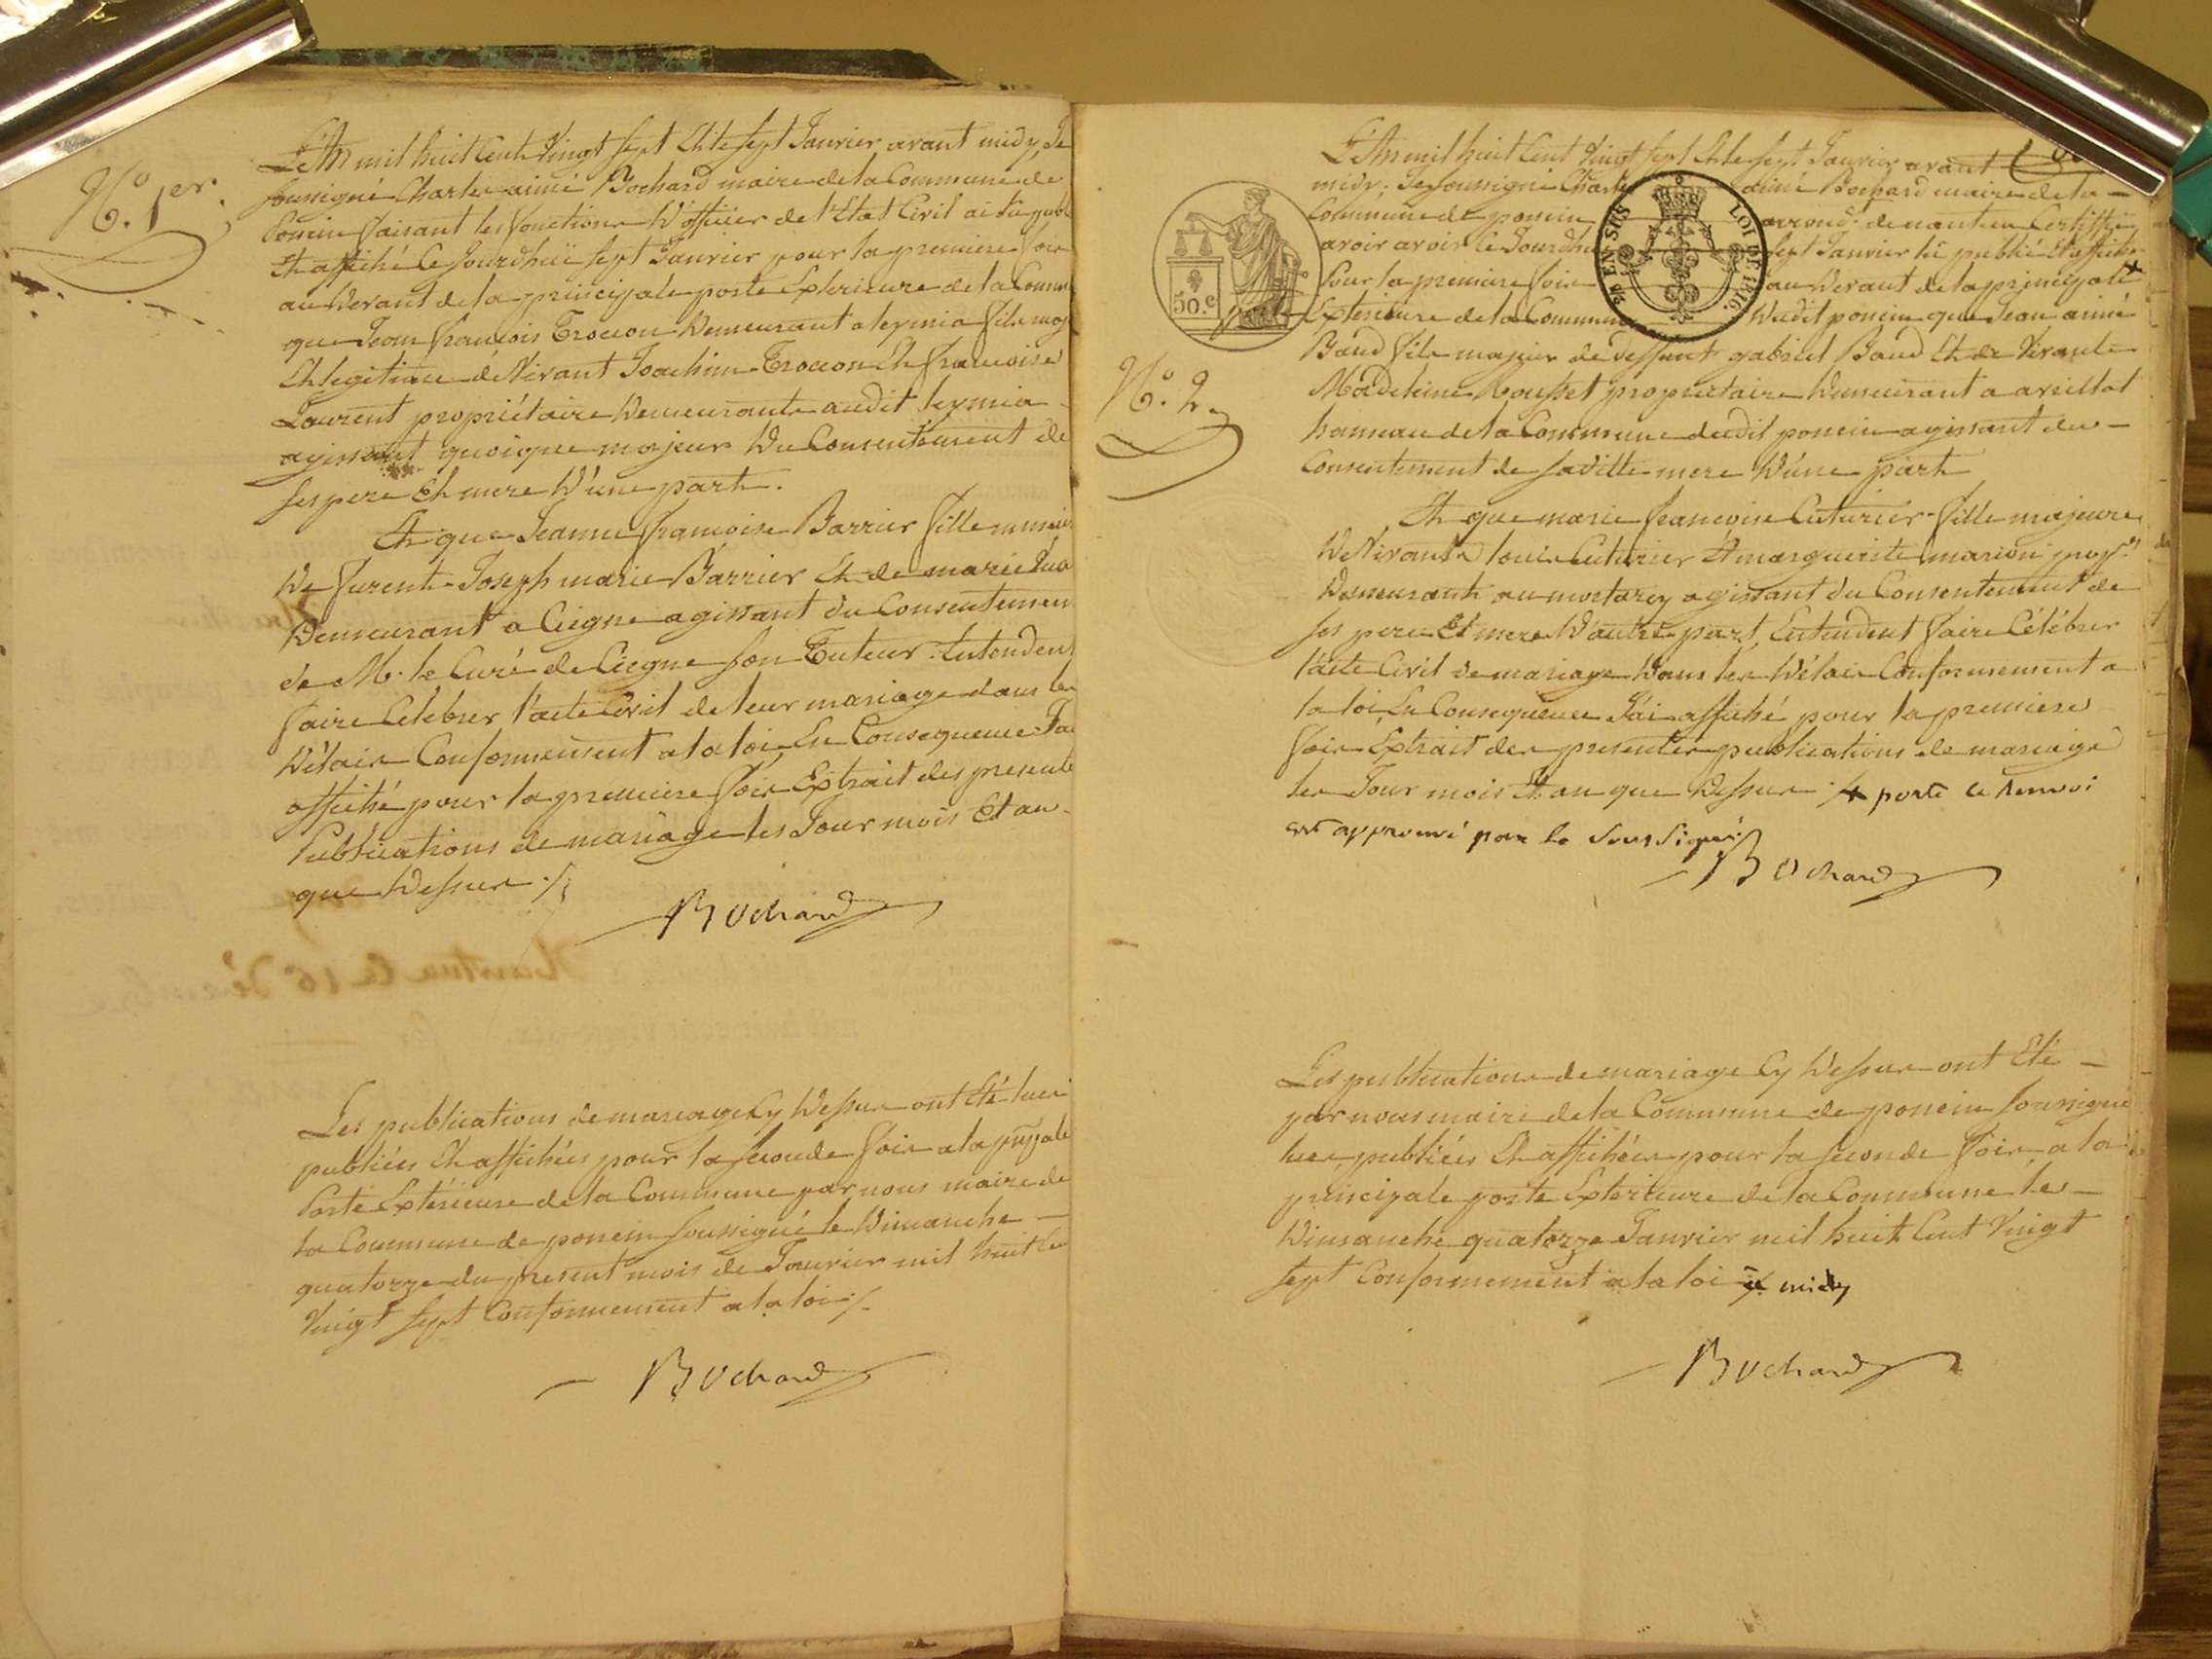 N.o 1er.
L'An mil huit Cent Vingt Sept Et le Sept Janvier avant midy, Je
soussigné Charles aimé Bochard maire de la Commune de
Poncin faisant les fonctions d'officier de l'Etat Civil ai lu publ
Et affiché Ce Jourdhui Sept Janvier pour la premiere fois
au devant de la principale porte Exterieure de la Comm
que Jean françois Troccon demeurant a leymia fils maj
Et legitime de Vivant Joachim Troccon Et françoise
Laurent propriétaire demeurants audit leymia
agissant quoique majeur du Consentement de
ses pere Et mere d'une part.
Et que Jeanne françoise Barrier fille mineure
de furent Joseph marie Barrier Et de marie
demeurant a Ciegne agissant du Consentemen
de M. le Curé de Ciegne son Tuteur. Entendent
faire Célébrer l'acte Civil de leur mariage dans les
délais Conformement a la loi, En Consequence J'ai
affiché pour la premiere fois Extrait des presente
Publications de mariage les Jour mois Et an
que dessus ./.
Bochard
Les publications de mariage Cy dessus ont Eté lues
publiées Et affichées pour la seconde fois a la ppale
Porte Extérieure de la Commune par nous maire de
la Commune de poncin soussigné le dimanche
quatorze du present mois de Janvier mil huit Cen
Vingt Sept Conformement a la loi ./.
Bochard
50.c
EN SUS
LOI DE 1816.
N.o 2
L'An mil huit Cent Vingt Sept Et le Sept Janvier avant
midy; Je soussigné Charles aimé Bochard maire de la
Commune de poncin arrond.t de nantua Certiffie
avoir avoir Ce Jourdhui Sept Janvier lu publié Et affiché
Pour la premiere fois au devant de la principale +
Exterieure de la Commune dudit poncin que Jean aimé
Baud fils majeur de deffunt gabriel Baud Et de Vivante
Madeleine Rousset propriétaire demeurant a
hameau de la Commune dudit poncin agissant du
Consentement de sa ditte mere d'une part
Et que marie françoise Cuturier fille majeure
de Vivants louis Cuturier Et marguerite marion prop.res
demeurants au mortarey agissant du Consentement de
ses pere Et mere d'autre part, Entendent faire Célébrer
l'acte Civil de mariage dans les délais Conformement a
la loi, En Consequence J'ai affiché pour la premiere
fois Extrait des presentes publications de mariage
les Jour mois Et an que dessus ./. + porte ce renvoi
est approuvé par le soussigné ./.
Bochard
Les publications de mariage Cy dessus ont Eté
par nous maire de la Commune de poncin soussigné
lues, publiées Et affichées pour la seconde fois a la
principale porte Exterieure de la Commune le
dimanche quatorze Janvier mil huit Cent Vingt
Sept Conformement a la loi a midy
Bochard